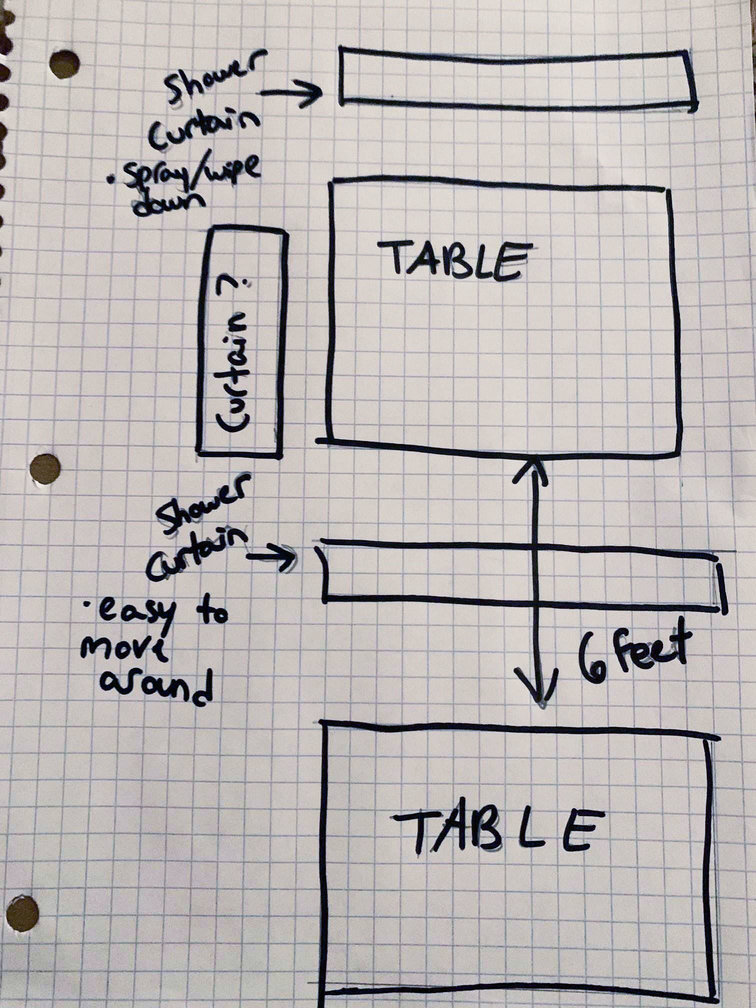 Shower
Curtain
. spray/wipe
down
Curtain ?
Shower
Curtain
. easy to
move
around
TABLE
TABLE
6 feet